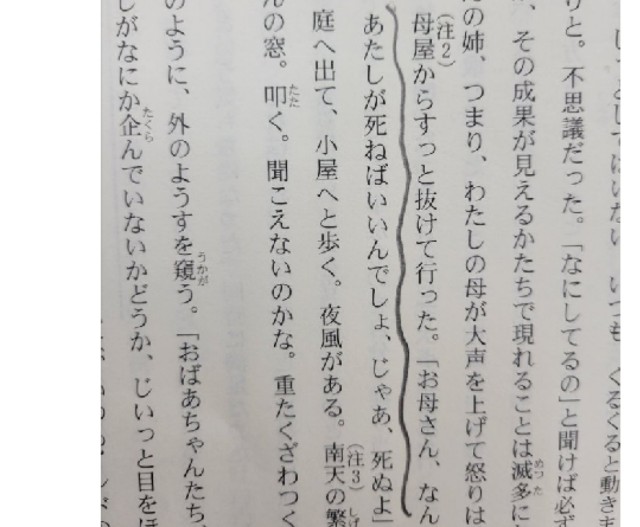 してはいない いつも、くるくると動きま
りと。不思議だった。「なにしてるの」と聞けば必ず
、その成果が見えるかたちで現れることは滅多に
めった
んの姉、つまり、わたしの母が大声を上げて怒りは
(注2)
母屋からすっと抜けて行った。「お母さん、なん
あたしが死ねばいいんでしょ、じゃあ、死ぬよ」
庭へ出て、小屋へと歩く。夜風がある。南天の繁
(注3)
しげ
んの窓。叩く。聞こえないのかな。重たくざわつく
たた
のように、外のようすを窺う。「おばあちゃんたち、
うかが
しがなにか企んでいないかどうか、じいっと目をほ
たくら